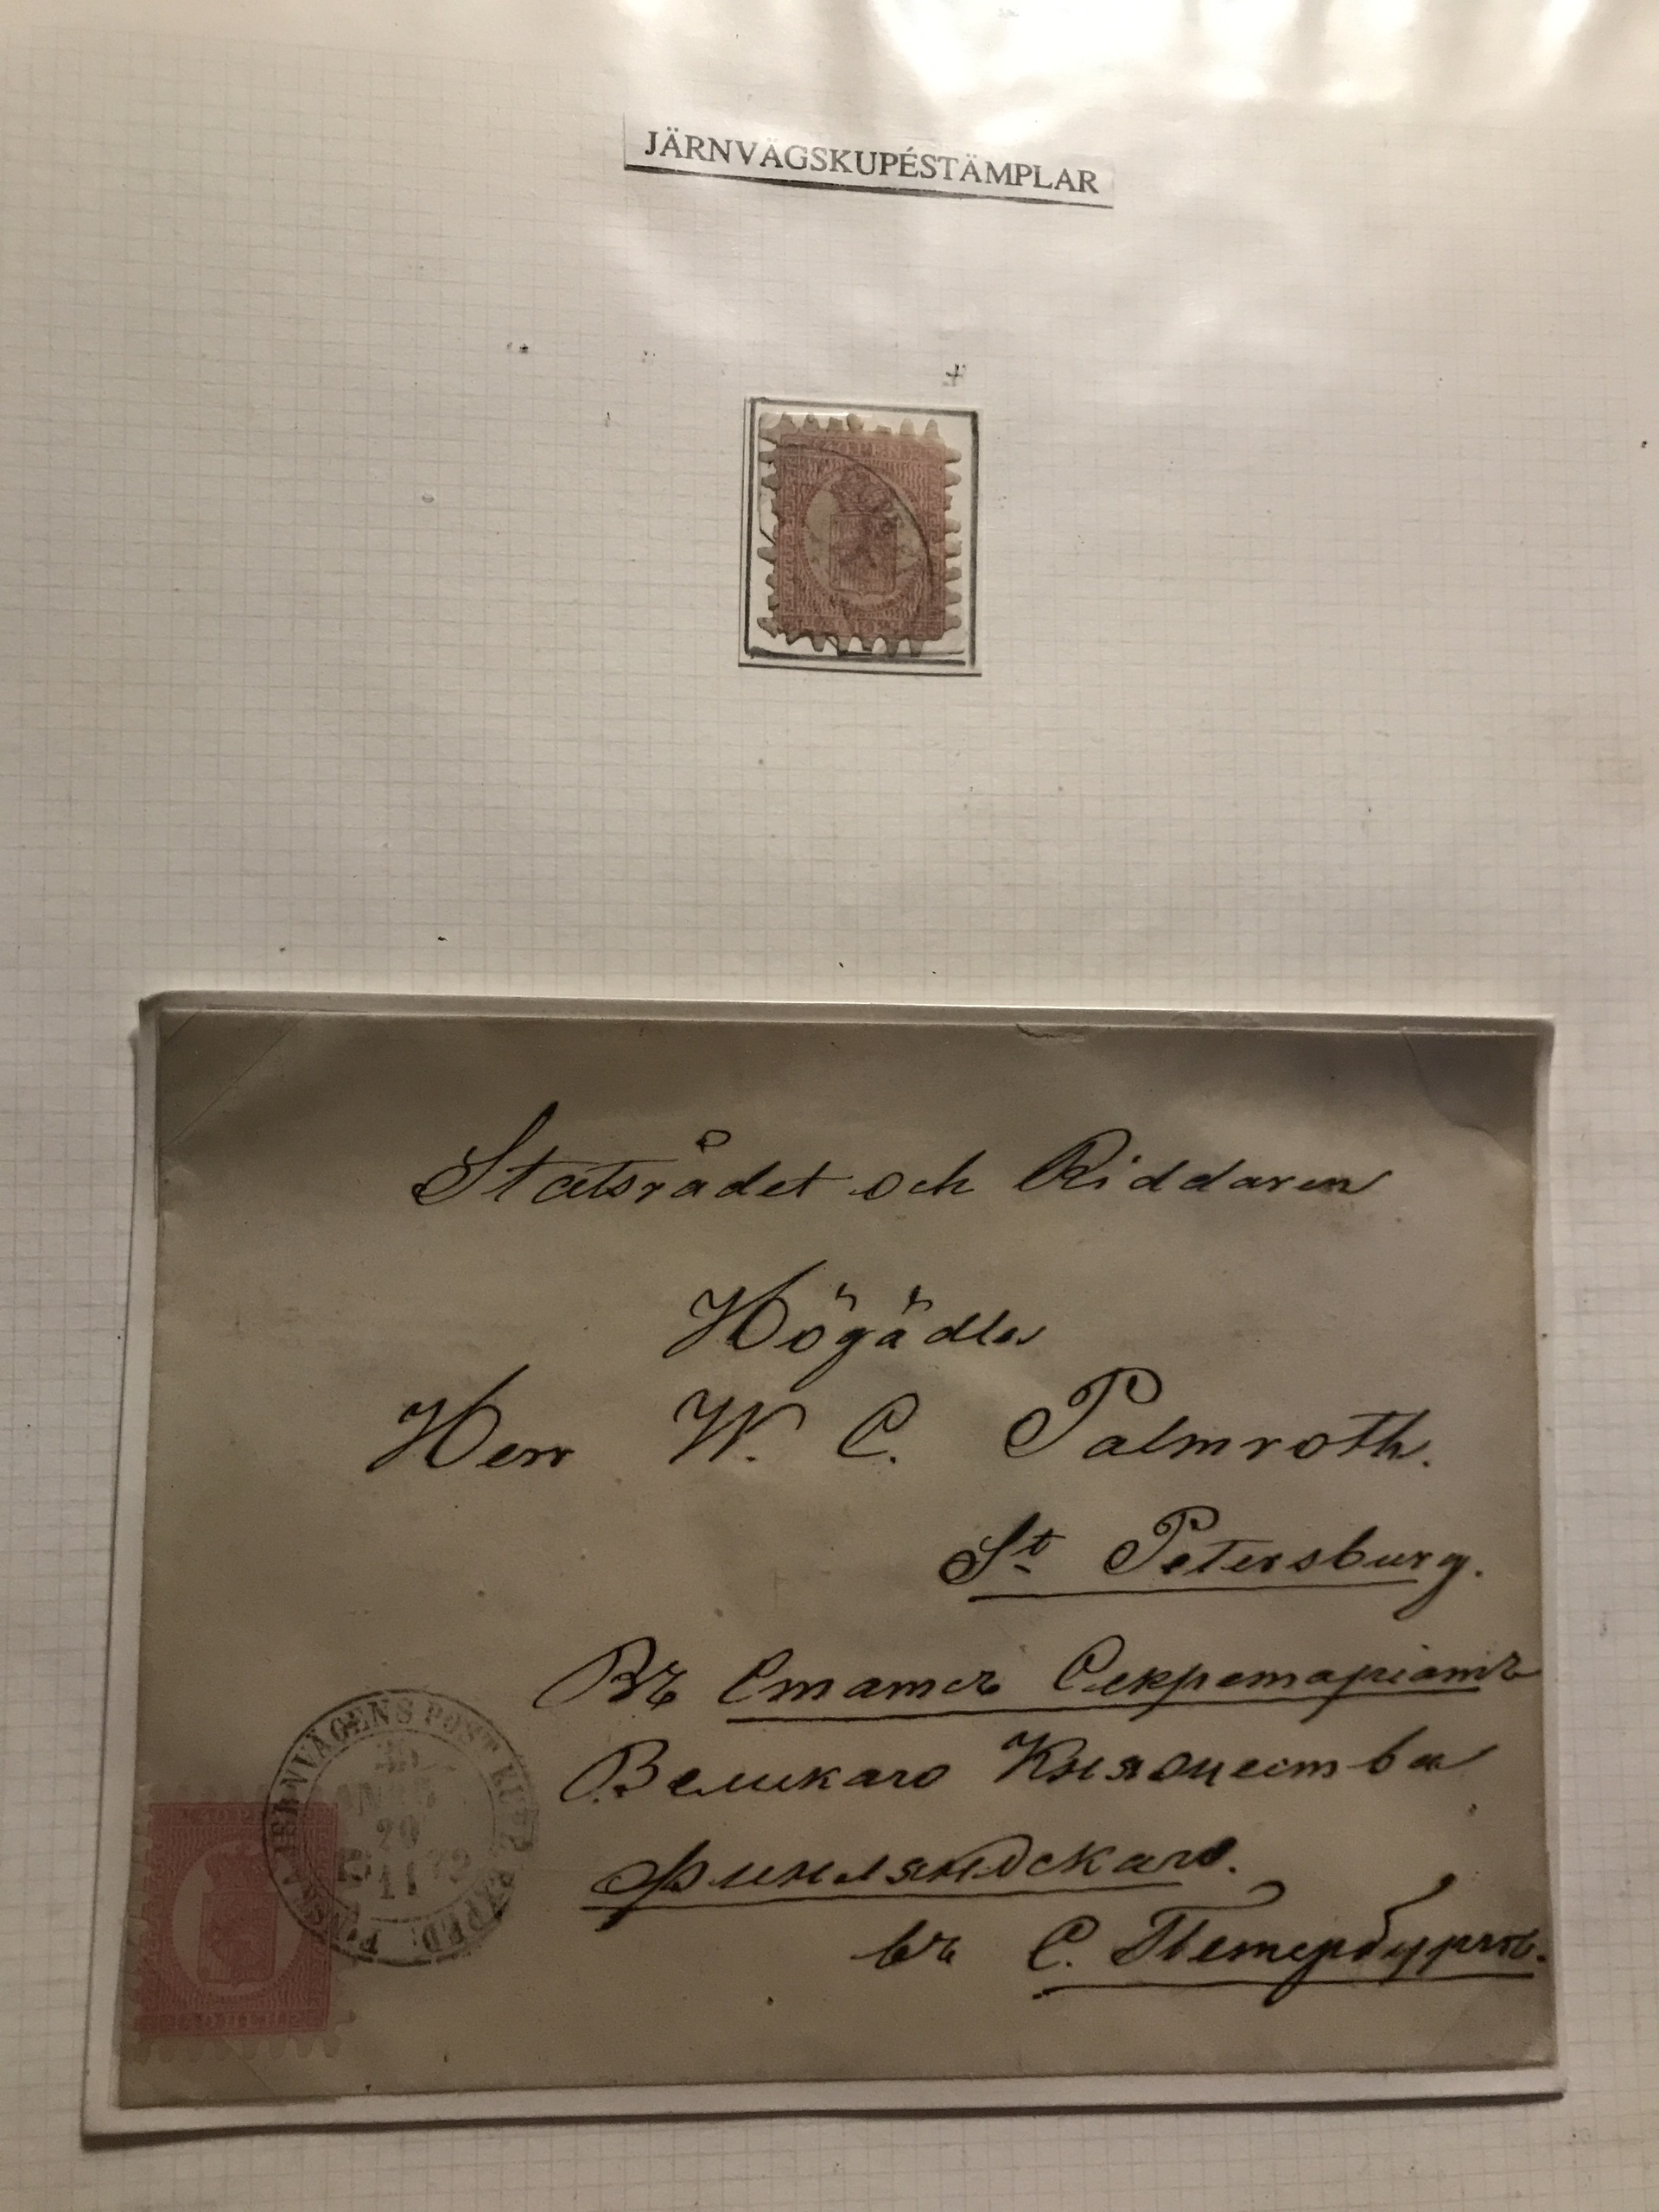 JÄRNVÄGSKUPÉSTÄMPLAR
Statsrådet och Riddaren
Högädle
Herr W. C. Palmroth.
St Petersburg.
Въ Статсъ Секретаріатъ
Великаго Княжества
Финляндскаго.
въ С. Петербургѣ.
FINSKA JERNVÄGENS POST KUPÉ EXPED:
20